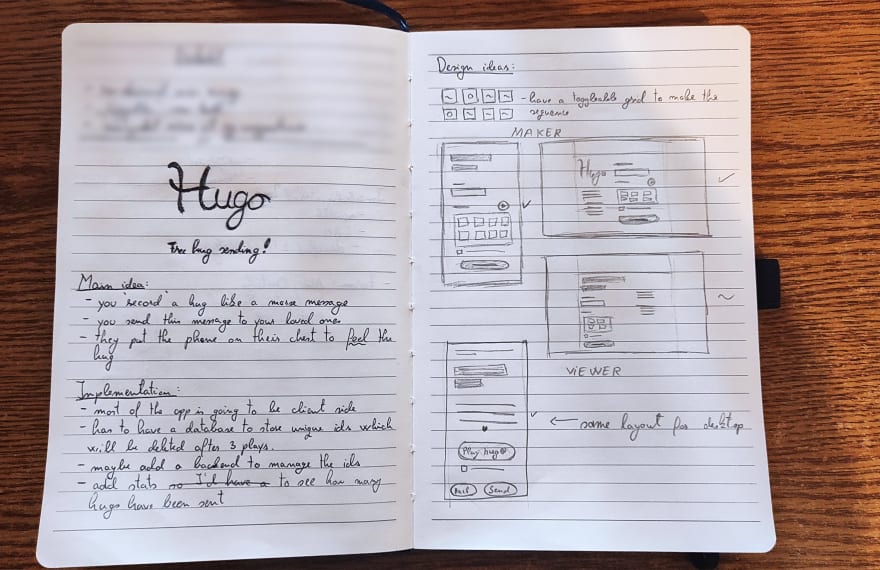 Hugo
Free hug sending!
Main idea:
- you "record" a hug like a morse message
- you send this message to your loved ones
- they put the phone on their chest to feel the
hug
Implementation:
- most of the app is going to be client side
- has to have a database to store unique ids which
will be deleted after 3 plays.
- maybe add a backend to manage the ids
- add stats so I'd have a to see how many
hugs have been sent
Design ideas:
- have a toggleable grid to make the
sequence
MAKER
Hugo
VIEWER
← same layout for desktop
Play hug
Send